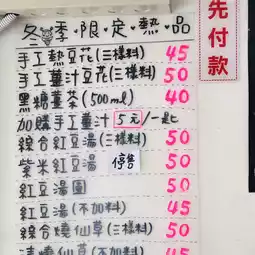 冬季·限定·熱·品
手工熱豆花(三樣料) 45
手工薑汁豆花(三樣料) 50
黑糖薑茶(500ml) 40
加購手工薑汁 5元/一匙
綜合紅豆湯(三樣料) 50
紫米紅豆湯 停售 50
紅豆湯圓 50
紅豆湯(不加料) 45
綜合燒仙草(三樣料) 50
燒仙草(不加料) 45
先付款